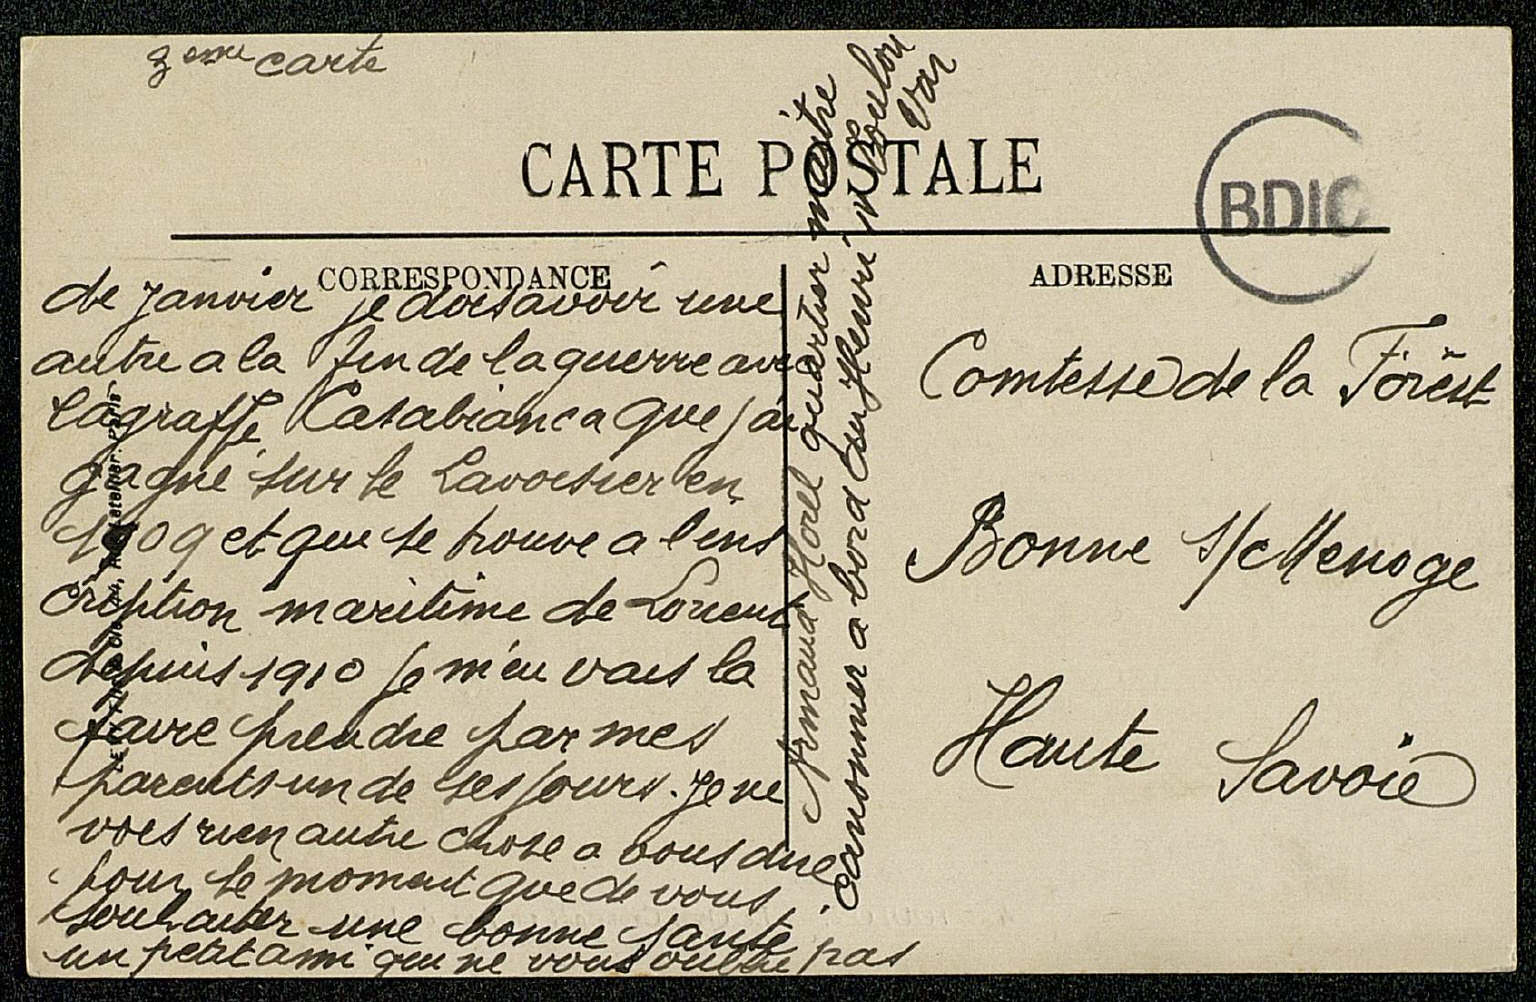 3eme carte
CARTE POSTALE
BDIC
CORRESPONDANCE
ADRESSE
de janvier je dois avoir une
autre a la fin de la guerre avec
l'agraffe Casabianca que j'ai
gagné sur le Lavoisier en
1909 et que se trouve a l'ins
cription maritime de Lorient
depuis 1910 je m'en vais la
faire prendre par mes
parents un de ses jours. Je ne
vois rien autre chose a vous dire
pour le moment que de vous
souhaiter une bonne santé
un petit ami qui ne vous oublie pas
Armand Horel quartier maitre
canonnier a bord du Henri IV Toulon
Var
Comtesse de la Forest
Bonne s/c Menoge
Haute Savoie